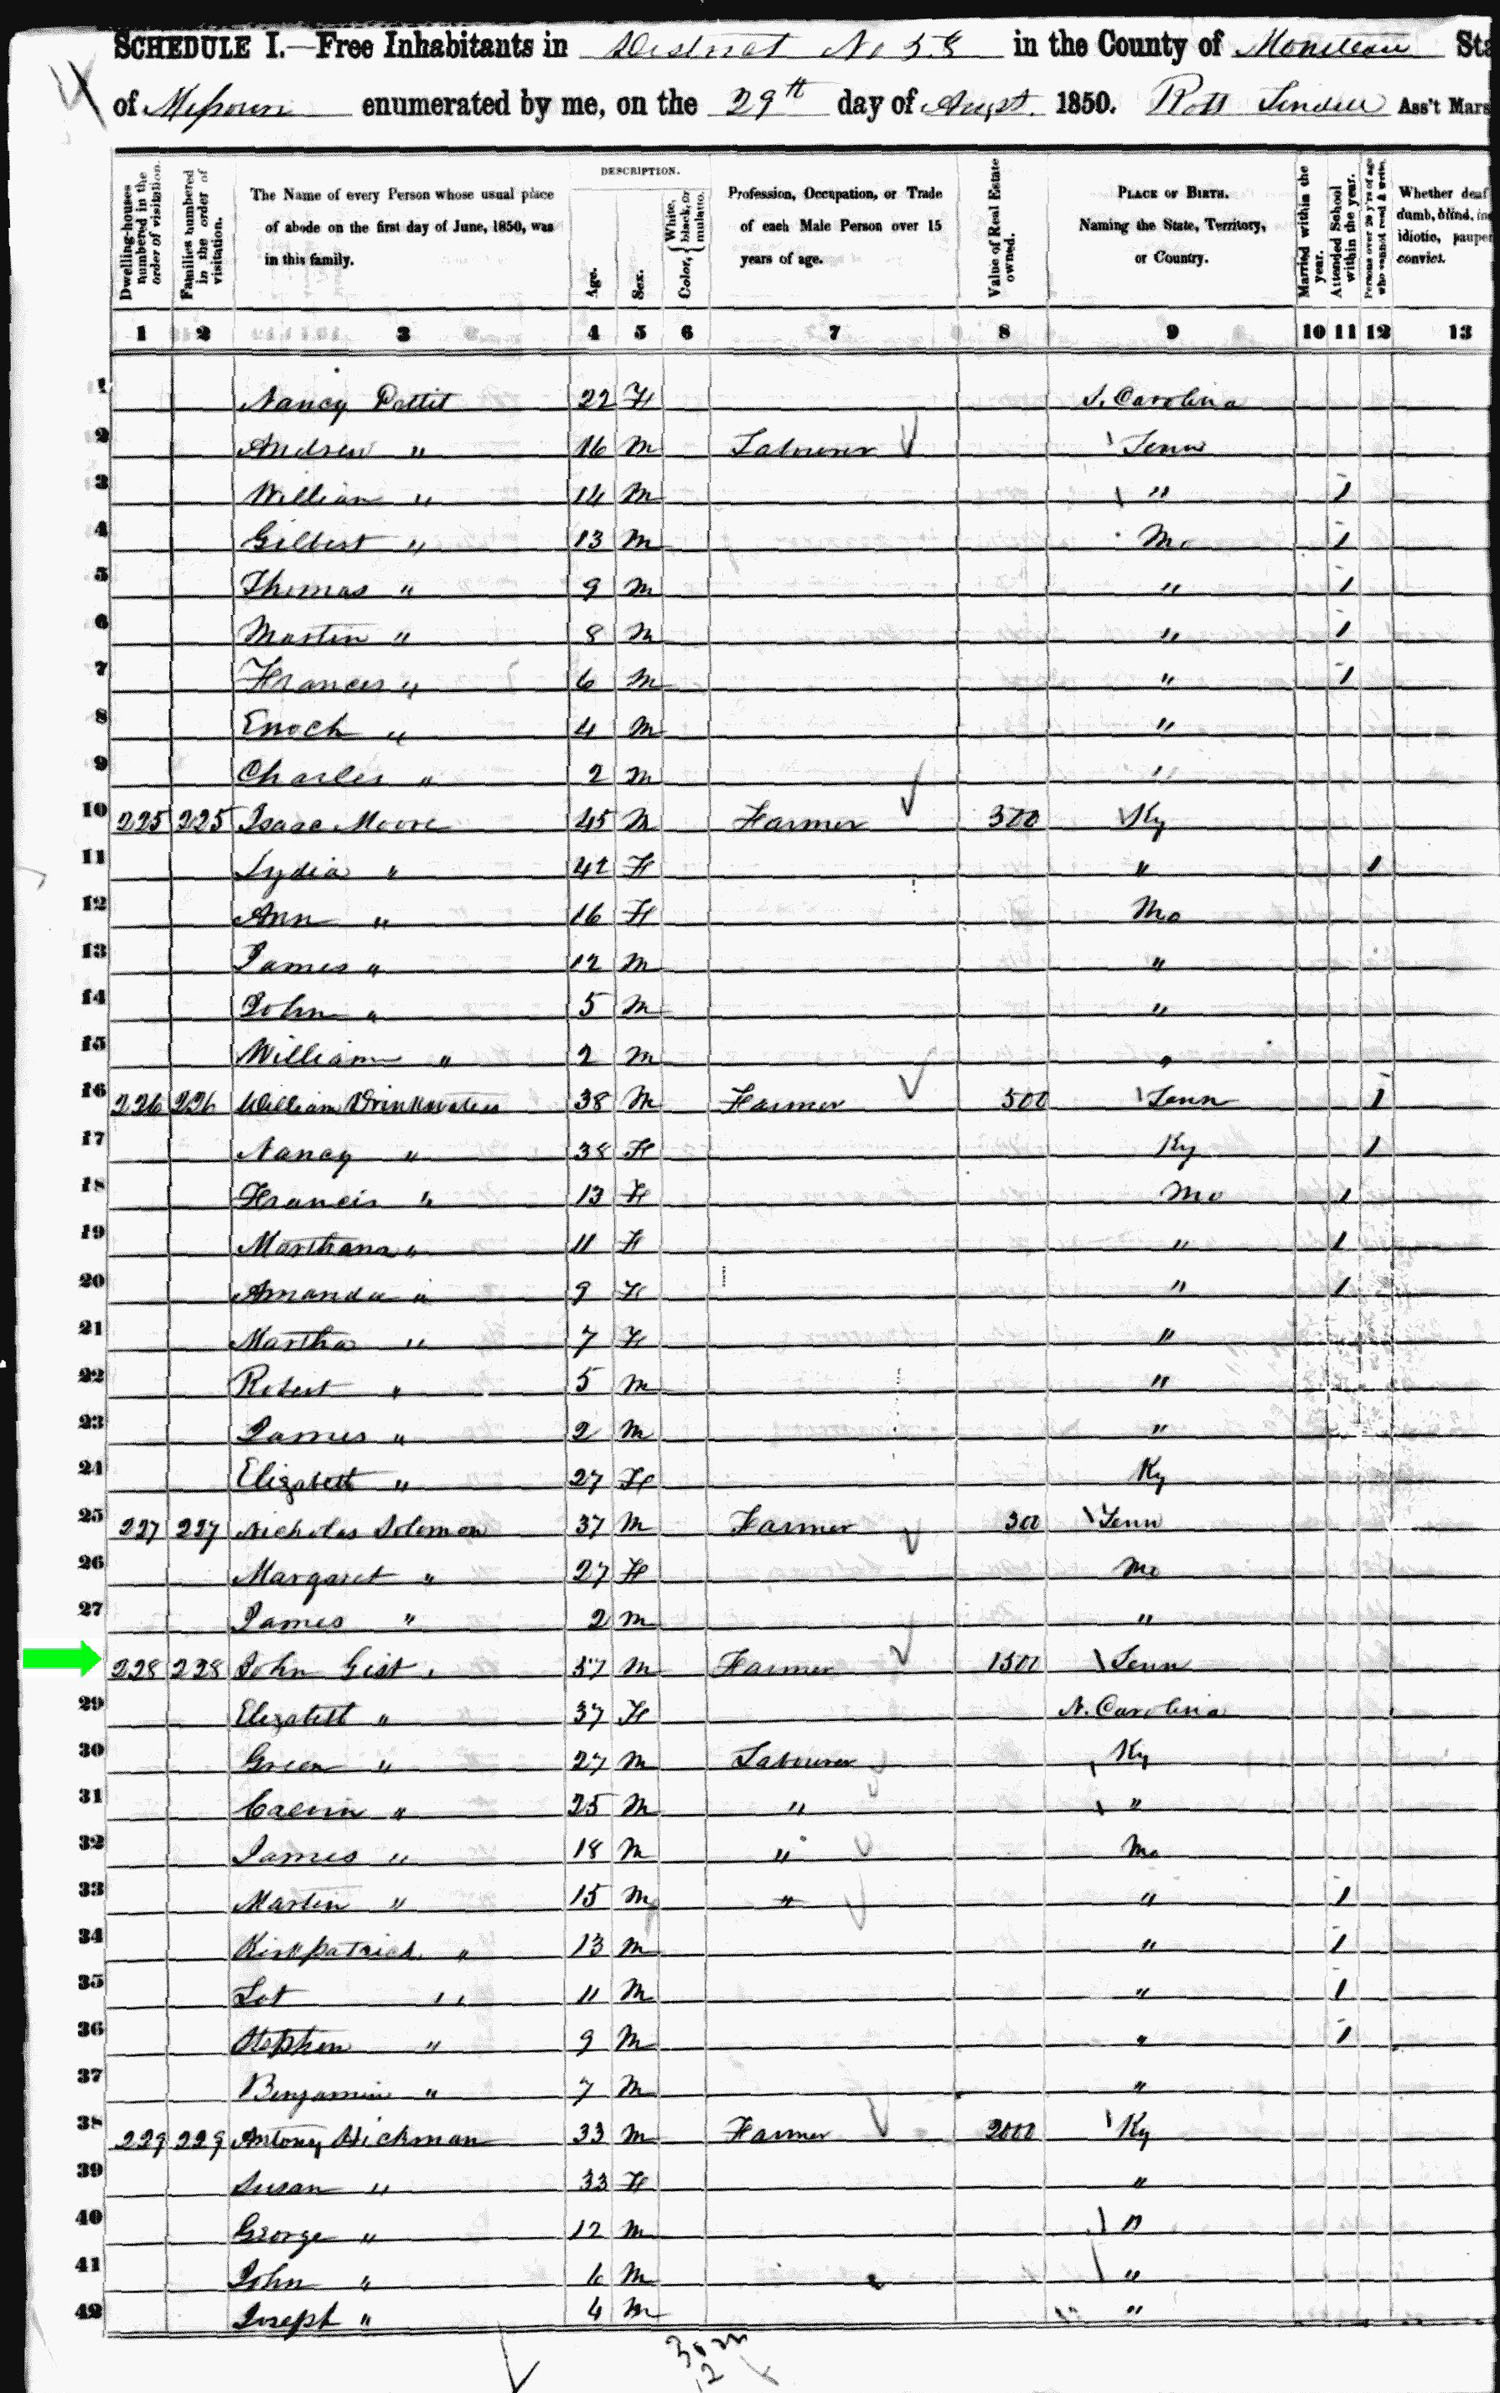 SCHEDULE I.—Free Inhabitants in District No 58 in the County of Moniteau Sta
of Missouri enumerated by me, on the 29th day of Augst. 1850. Ass't Mars
Dwelling-houses numbered in the order of visitation.
Families numbered in the order of visitation.
The Name of every Person whose usual place of abode on the first day of June, 1850, was in this family.
DESCRIPTION.
Age.
Sex.
Color, { White, black, or mulatto.
Profession, Occupation, or Trade of each Male Person over 15 years of age.
Value of Real Estate owned.
PLACE OF BIRTH. Naming the State, Territory, or Country.
Married within the year.
Attended School within the year.
Persons over 20 y'rs of age who cannot read & write.
Whether deaf dumb, blind, in idiotic, pauper convict.
1 2 3 4 5 6 7 8 9 10 11 12 13
1 Nancy Pettit 22 F S. Carolina
2 Andrew " 16 M Labourer Tenn
3 William " 14 M " 1
4 Gilbert " 13 M Mo 1
5 Thomas " 9 M " 1
6 Martin " 8 M " 1
7 Francis " 6 M " 1
8 Enoch " 4 M "
9 Charles " 2 M "
10 225 225 Isaac Moore 45 M Farmer 300 Ky
11 Lydia " 42 F " 1
12 Ann " 16 F Mo
13 James " 12 M "
14 John " 5 M "
15 William " 2 M "
16 226 226 William Drinkwater 38 M Farmer 500 Tenn 1
17 Nancy " 38 F Ky 1
18 Francis " 13 F Mo 1
19 Marthana " 11 F " 1
20 Amanda " 9 F " 1
21 Martha " 7 F "
22 Robert " 5 M "
23 James " 2 M "
24 Elizabeth " 27 F Ky
25 227 227 Nicholas Solomon 37 M Farmer 300 Tenn
26 Margaret " 27 F Mo
27 James " 2 M "
228 228 John Gist 57 M Farmer 1500 Tenn
29 Elizabeth " 37 F N. Carolina
30 Green " 27 M Labourer Ky
31 Calvin " 25 M " "
32 James " 18 M " Mo
33 Martin " 15 M " " 1
34 Kirkpatrick " 13 M " 1
35 Lot " 11 M " 1
36 Stephen " 9 M " 1
37 Benjamin " 7 M "
38 229 229 Antony Hickman 33 M Farmer 2000 Ky
39 Susan " 33 F "
40 George " 12 M "
41 John " 6 M "
42 Joseph " 4 M "
30 m
12